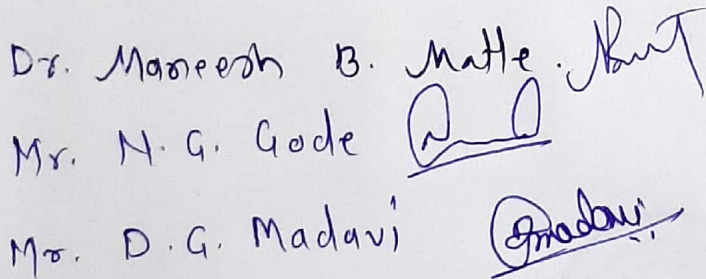 Dr. Maneesh B. Matte.
Mr. N. G. Gode
Mr. D. G. Madavi Dmadavi